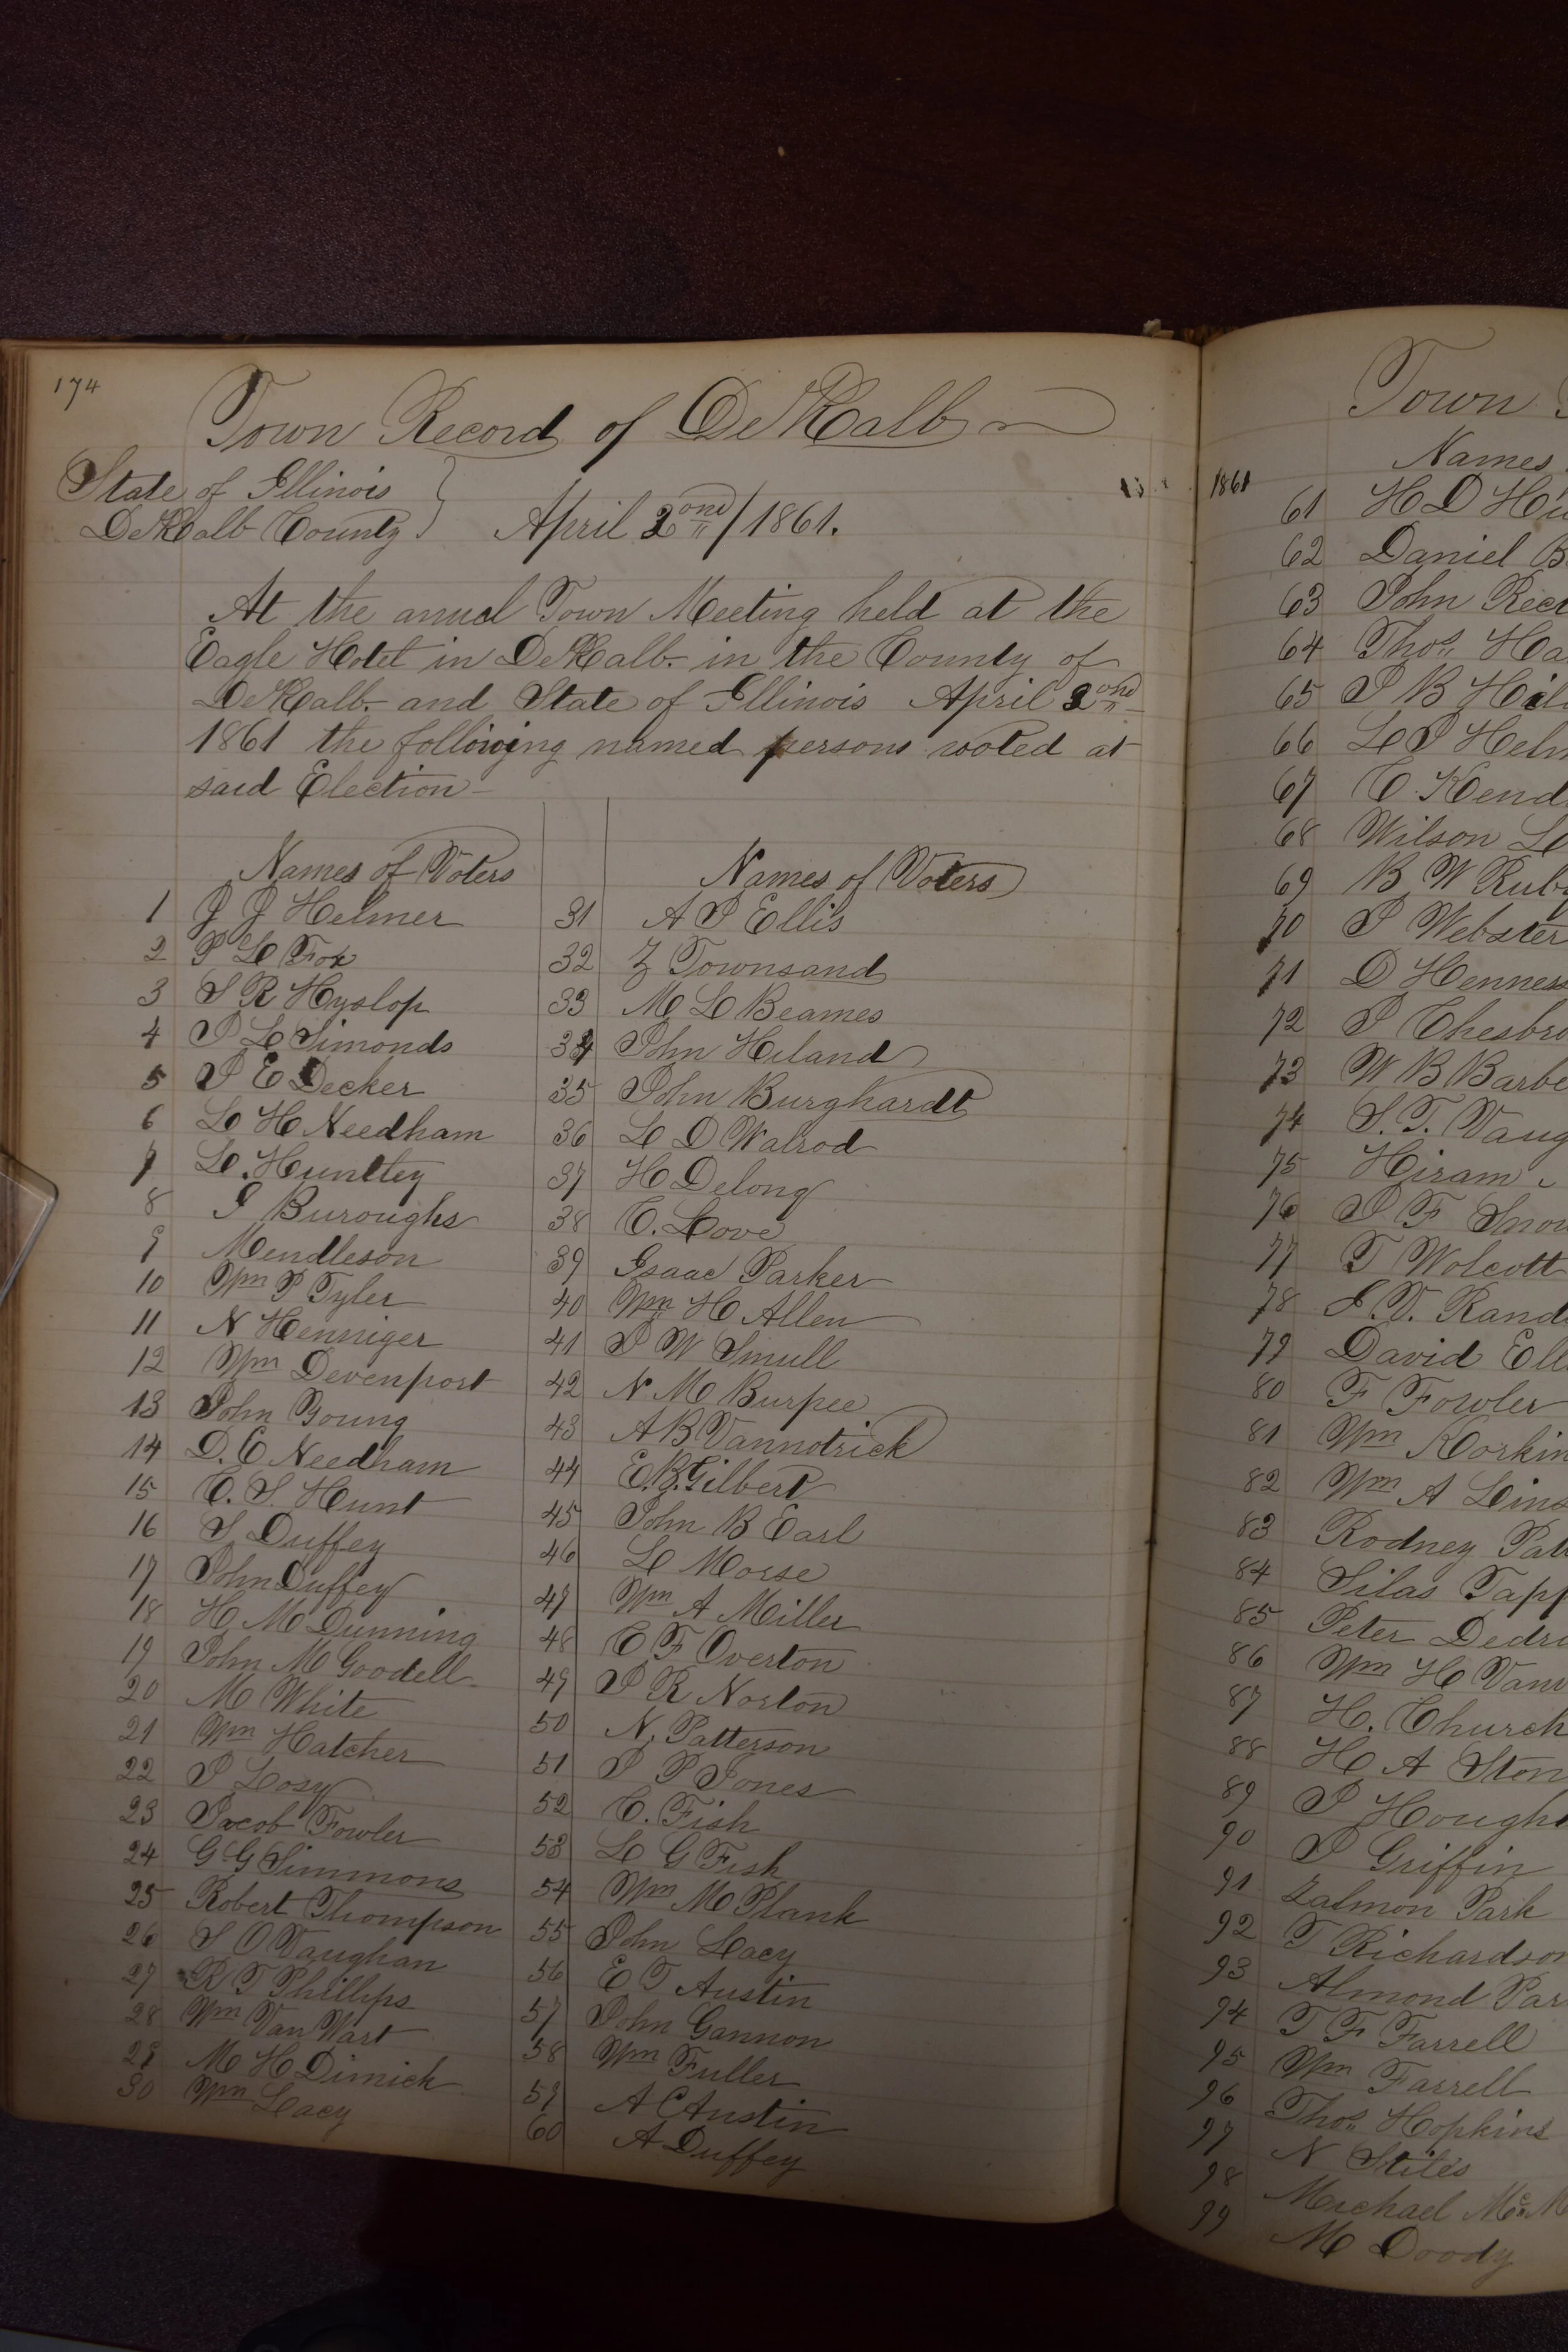 174
Town Record of DeKalb
State of Illinois
DeKalb County } April 2ond/1861.
At the anual Town Meeting held at the
Eagle Hotel in DeKalb- in the County of
DeKalb- and State of Illinois April 2ond
1861 the following named persons voted at
said Election-
Names of Voters
1 J J Helmer
2 P L Fox
3 S R Hyslop
4 J L Simonds
5 J E Decker
6 L H Needham
7 L. Huntley
8 I Buroughs
9 Mendleson
10 Wm P Tyler
11 N Henniger
12 Wm Devenport
13 John Young
14 D. C Needham
15 C. S. Hunt
16 S. Duffey
17 John Duffey
18 H. M Dunning
19 John M Goodell
20 M White
21 Wm Hatcher
22 J Losy
23 Jacob Fowler
24 G G Simmons
25 Robert Thompson
26 S O Vaughan
27 R T Phillips
28 Wm Van Wart
29 M H Dimick
30 Wm Lacy
Names of Voters
31 A J Ellis
32 Z Townsand
33 M L Beames
34 John Hiland
35 John Burghardt
36 L D Walrod
37 H Delong
38 C. Love
39 Isaac Parker
40 Wm H Allen
41 J W Smull
42 N M Burpee
43 A B Vannotrick
44 E. B. Gilbert
45 John B Earl
46 L Morse
47 Wm A Miller
48 C F Overton
49 J R Norton
50 N. Patterson
51 J P Jones
52 C. Fish
53 L G Fish
54 Wm M Plank
55 John Lacy
56 E T Austin
57 John Gannon
58 Wm Fuller
59 A C Austin
60 A Duffey
1861
Town
Names
61 H D
62 Daniel
63 John
64 Thos
65 J B
66 L J
67 C
68 Wilson
69 B W
70 J Webster
71 D
72 J
73 W B
74 S. T.
75 Hiram
76 J F
77 T Wolcott
78 J. V.
79 David
80 F Fowler
81 Wm
82 Wm A
83 Rodney
84 Silas
85 Peter
86 Wm H
87 H. Church
88 H A
89 J
90 J Griffin
91 Zalmon Park
92 T Richardson
93 Almond
94 T F Farrell
95 Wm Farrell
96 Thos Hopkins
97 N Stiles
98 Michael
99 M Doody